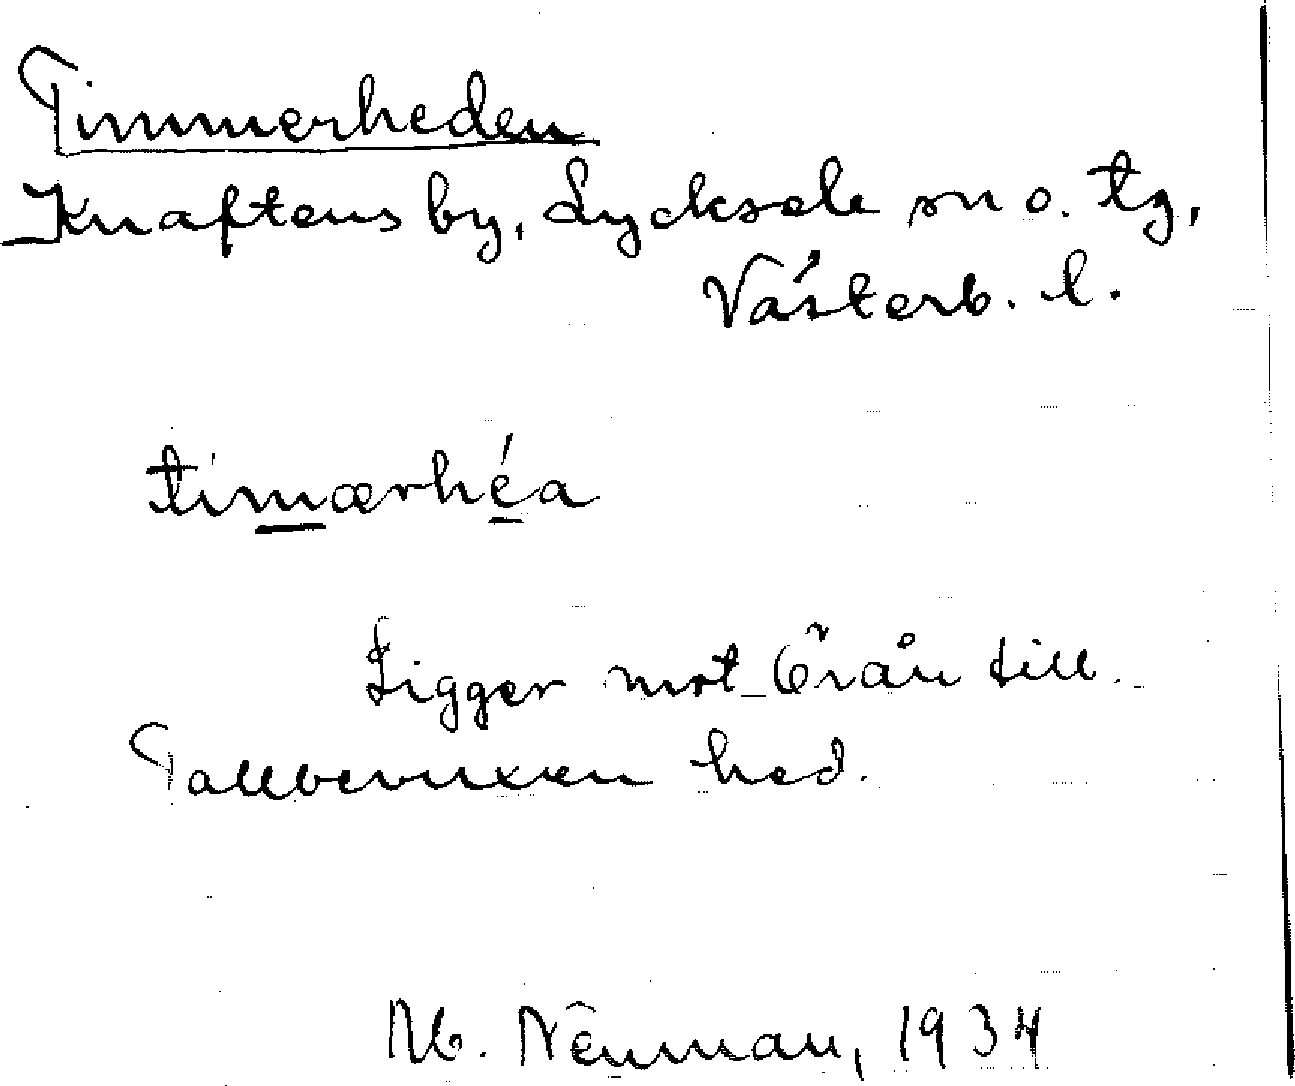 Timmerheden
Knaftens by, Lycksele sn o. tg,
Västerb. l.
timærhéa
Ligger mot Örån till.
Tallbevuxen hed.
Nenman, 1934